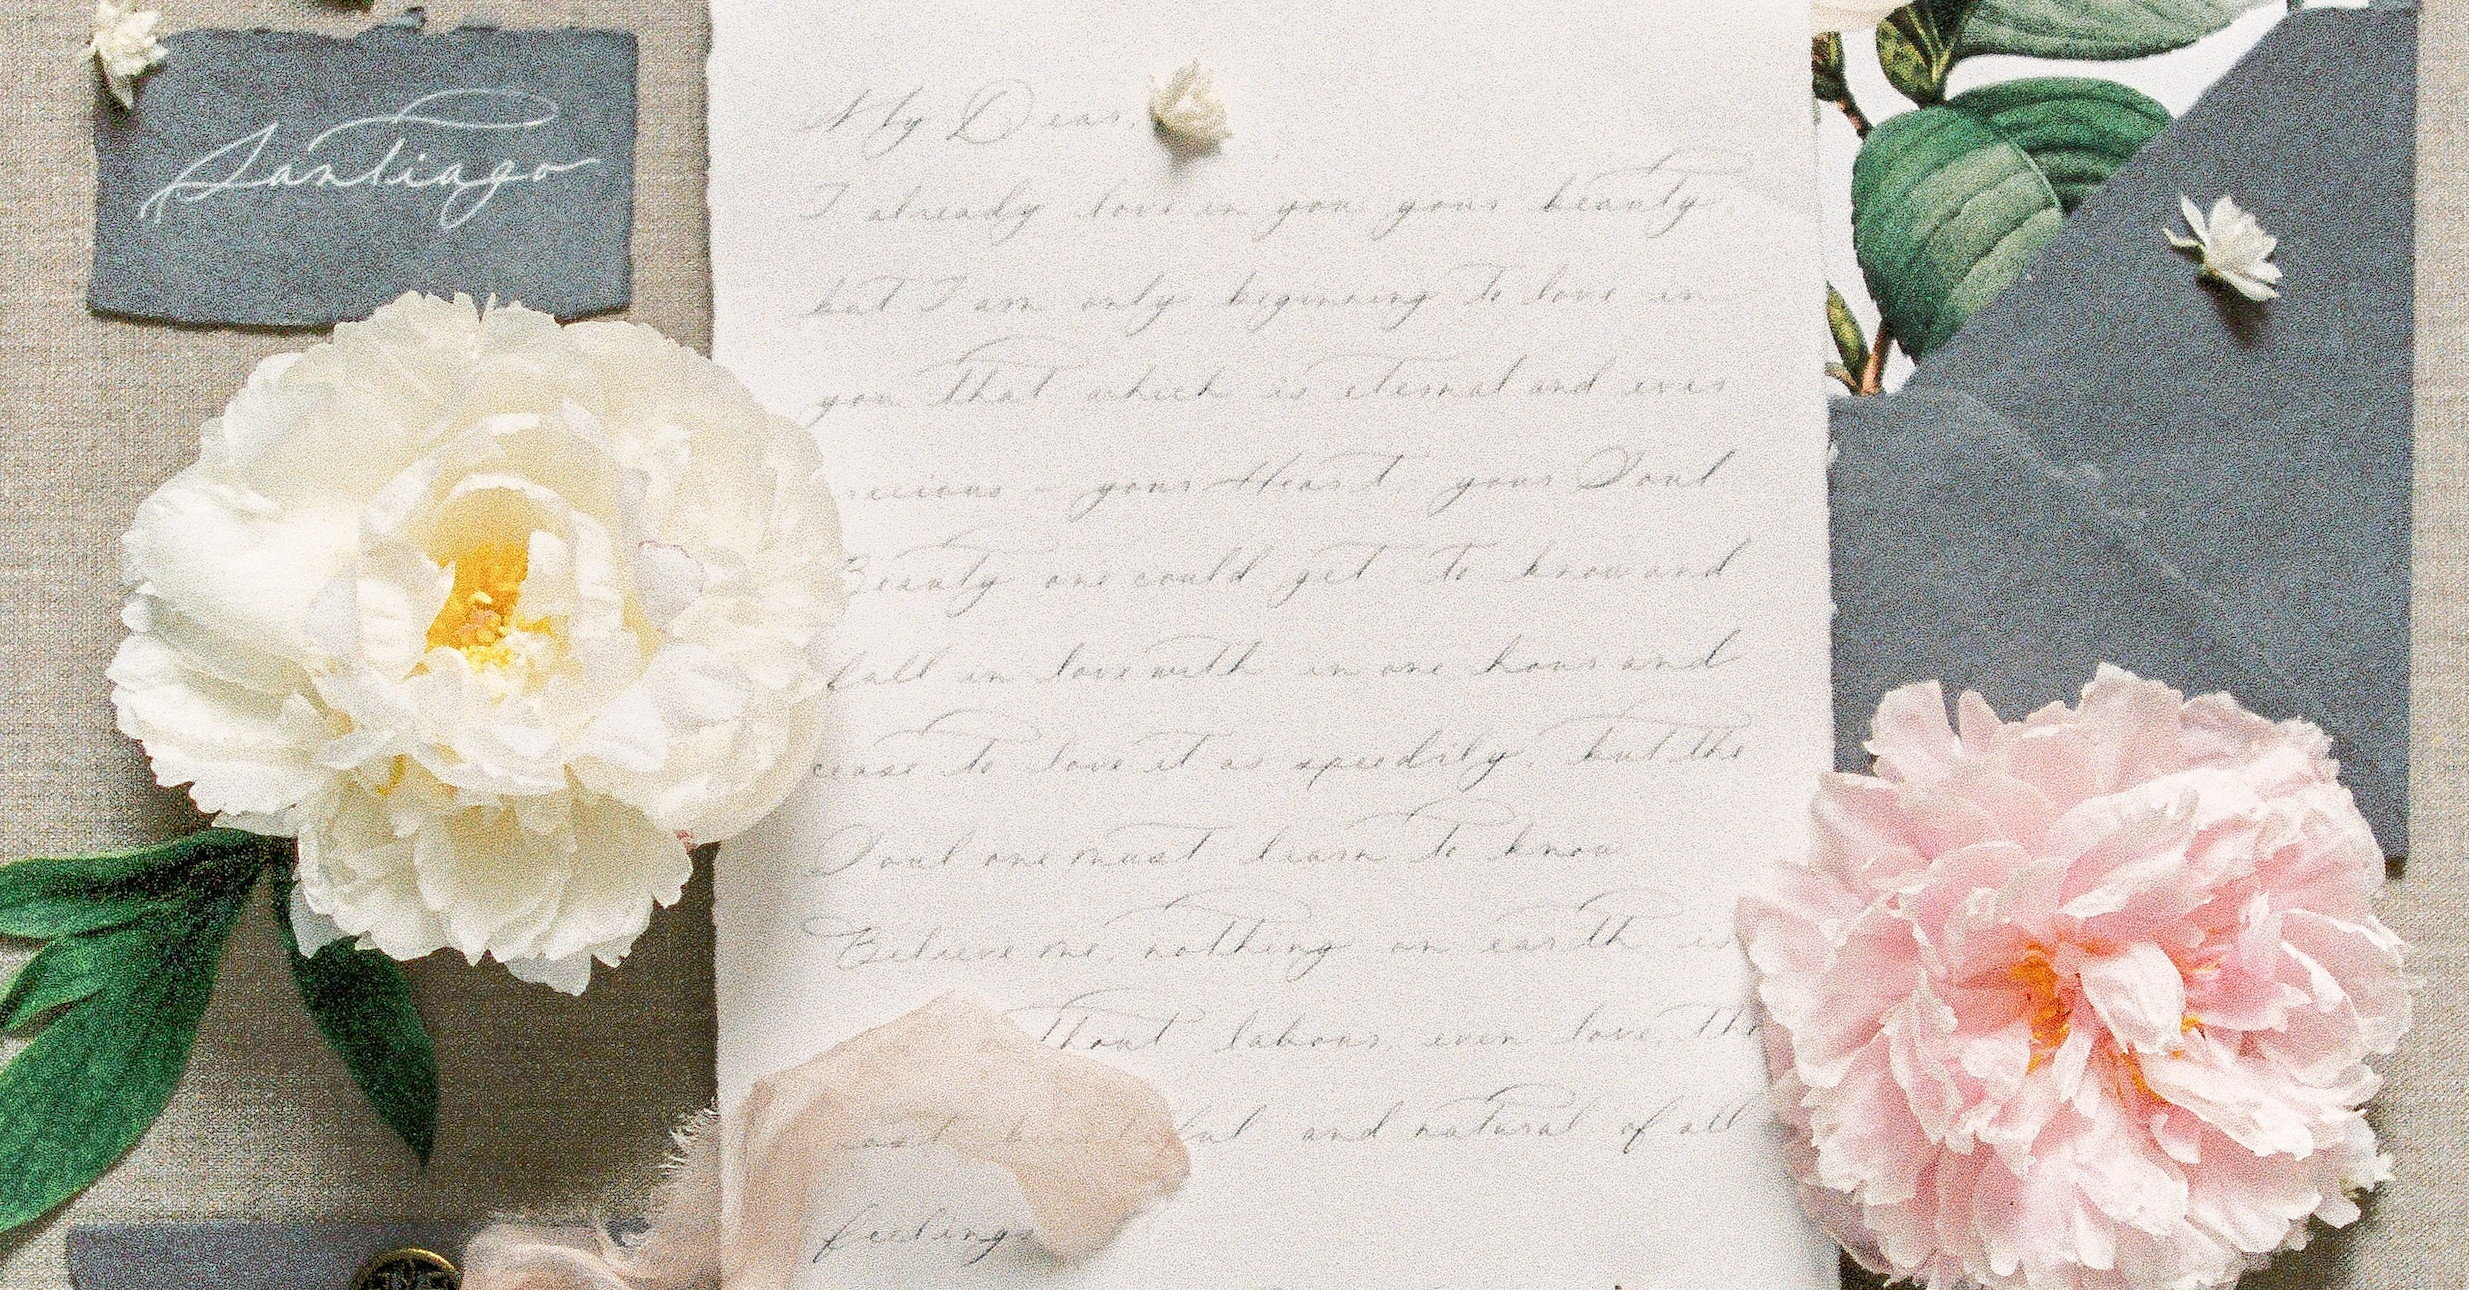 Santiago
My Dear,
I already love in you your beauty
but I am only beginning to love in
you that which is eternal and ever
recious - your Heart, your Soul
Beauty one could get to know and
fall in love with in one hour and
cease to love it as speedily, but the
Soul one must learn to know
Believe me, nothing on earth is
thout labour, even love, the
most beautiful and natural of all
feelings